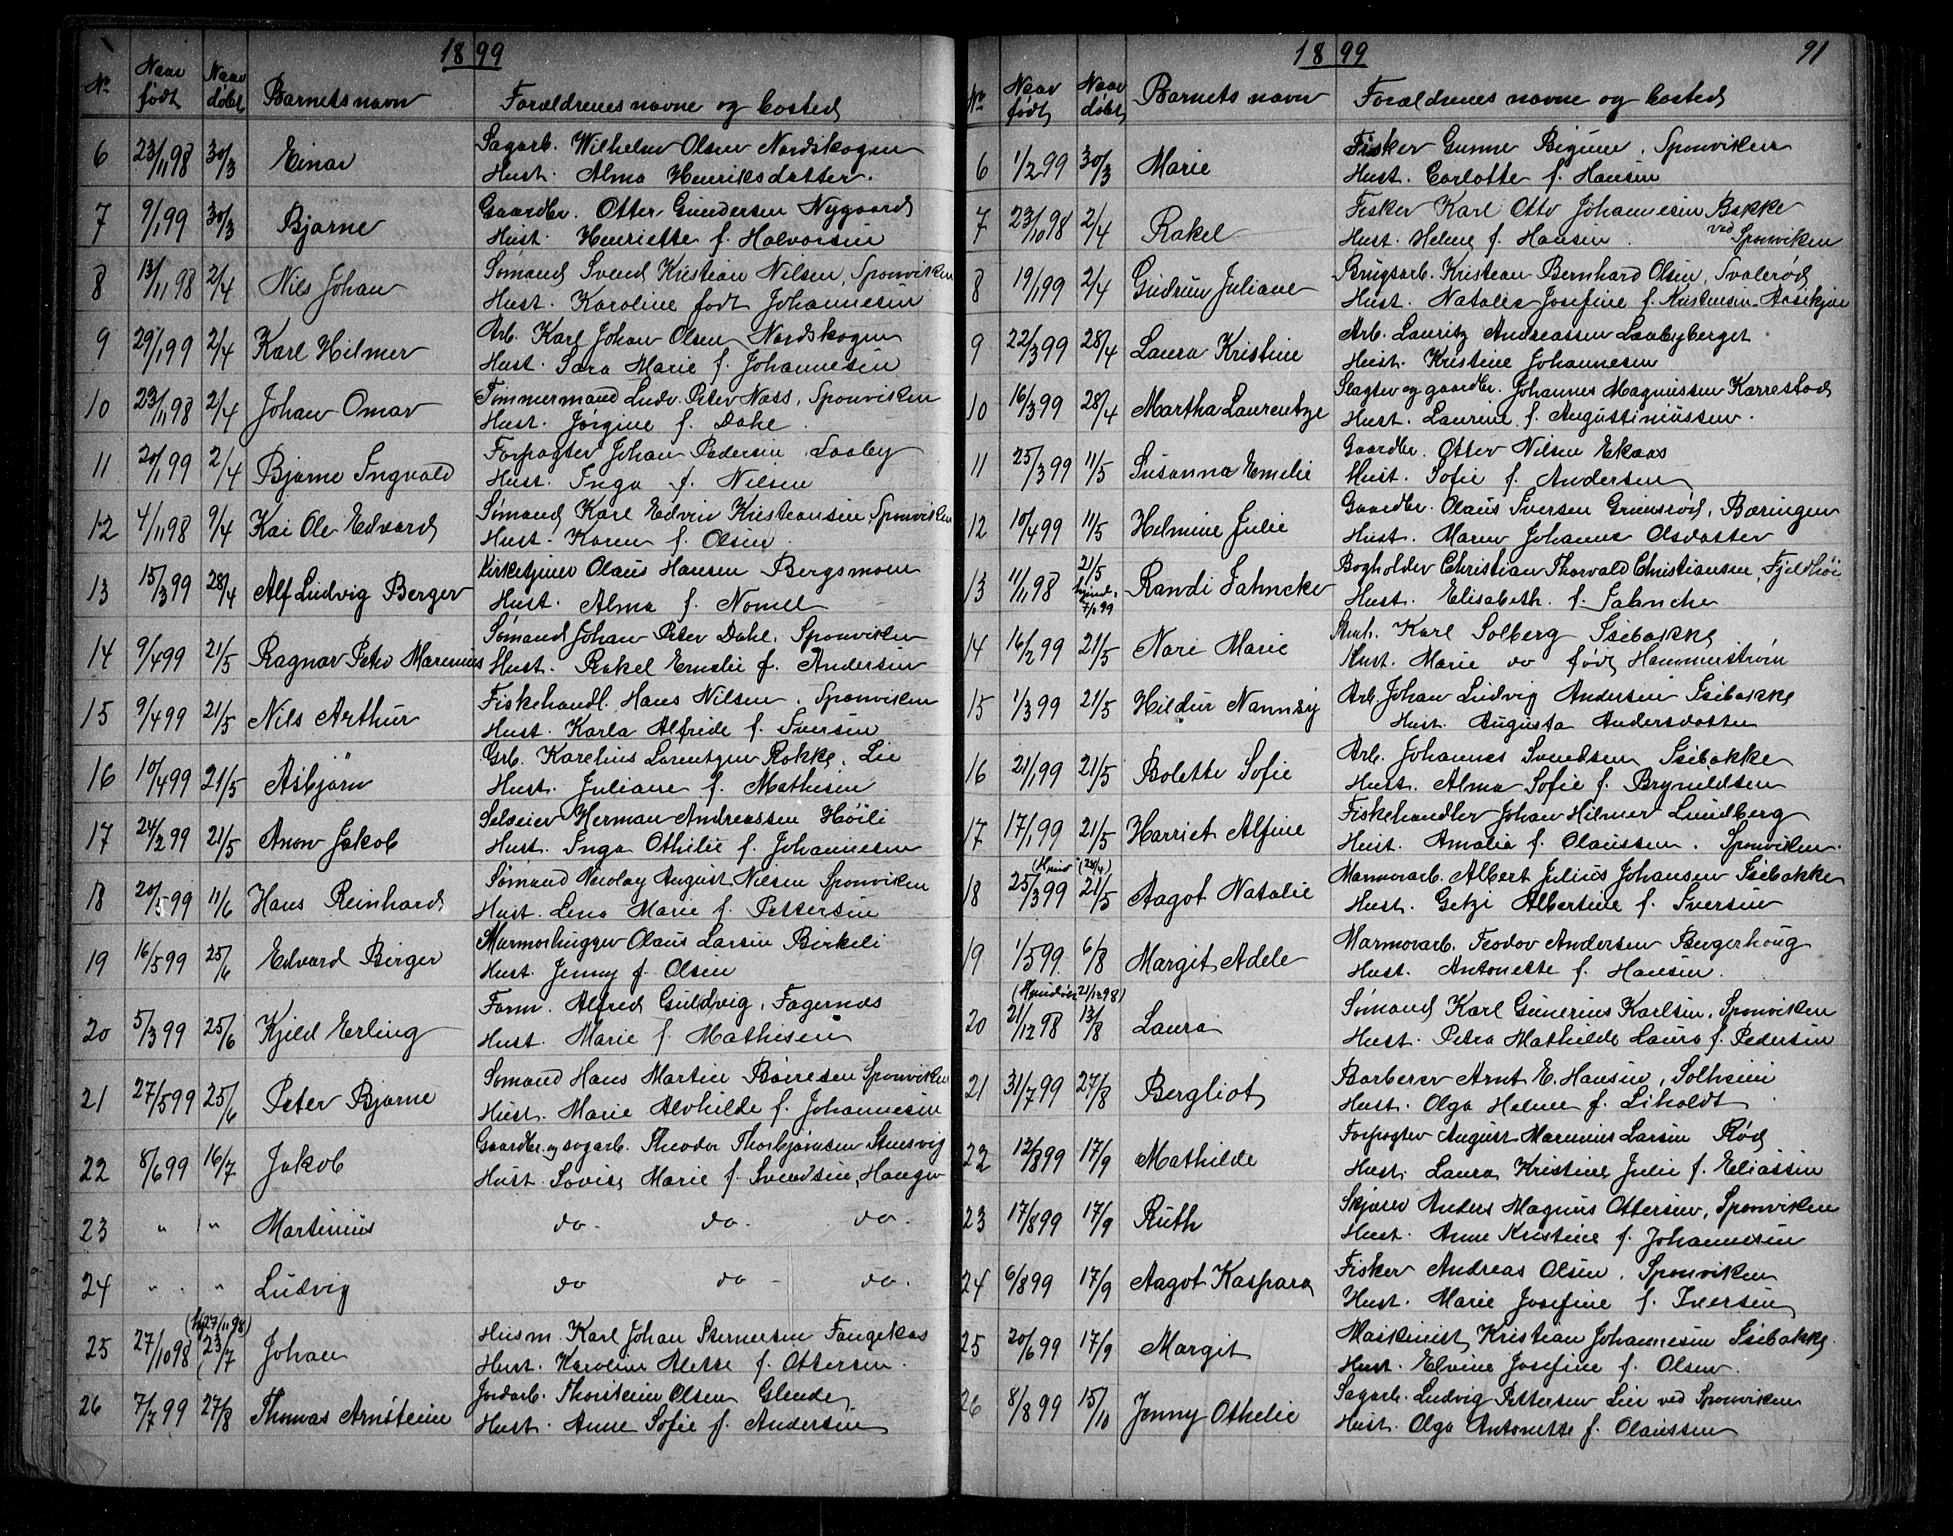 1899
No Naar født Naar døbt Barnets navn Forældrenes navne og bosted
6 23/11 98 30/3 Einar Sagarb. Wilhelm Olsen Nordskogen
Hust. Alma Henriksdatter.
7 9/1 99 30/3 Bjarne Gaardbr. Otter Gundersen Nygaard
Hust. Henriette f. Halvorsen
8 13/11 98 2/4 Nils Johan Sømand Svend Kristian Nilsen, Sponviken
Hust. Karoline født Johannesen
9 29/1 99 2/4 Karl Hilmer Arb. Karl Johan Olsen Nordskogen
Hust. Sara Marie f. Johannesen
10 23/11 98 2/4 Johan Omar Timmermand Ludv. Peter Næss, Sponviken
Hust. Jørgine f. Dahl.
11 20/1 99 2/4 Bjarne Ingvald Forpagter Johan Pedersen Laaby
Hust. Inga f. Nilsen
12 4/11 98 9/4 Kai Ole Edvard Sømand Karl Edvin Kristiansen, Sponviken
Hust. Karen f. Olsen.
13 15/3 99 28/4 Alf Ludvig Berger Kirketjener Olaus Hansen Bergsmoen
Hust. Alma f. Nomel
14 9/4 99 21/5 Ragnar Peter Marenius Sømand Johan Peter Dahl, Sponviken
Hust. Rakel Emelie f. Andersen
15 9/4 99 21/5 Nils Arthur Fiskehandl. Hans Nilsen, Sponviken
Hust. Karla Alfrede f. Iversen
16 10/4 99 21/5 Asbjørn Grb. Karelius Lorentzen Rokke, Lie
Hust. Juliane f. Mathisen
17 24/2 99 21/5 Anow Jakob Selveier Herman Andreassen Høili
Hust. Inga Othilie f. Johannesen
18 20/5 99 11/6 Hans Reinhard Sømand Nicolay August Nilsen Sponviken
Hust. Lena Marie f. Pettersen
19 16/5 99 25/6 Edvard Birger Marmorhugger Olaus Larsen Birkeli
Hust. Jenny f. Olsen
20 5/3 99 25/6 Kjeld Erling Farm. Alfred Guldvig, Fagernæs
Hust. Marie f. Mathisen
21 27/5 99 25/6 Peter Bjarne Sømand Hans Martin Børresen Sponviken
Hust. Marie Alvhilde f. Johannesen
22 8/6 99 16/7 Jakob Gaardbr. og sagarb. Theodor Thorbjørnsen Stuesvig
Hust. Lovise Marie f. Svendsen, Hauger
23 " " Martinius do. do. do.
24 " " Ludvig do do - do.
(hj 27/11 98)
25 27/10 98 (23/7 Johan Husm. Karl Johan Sternersen Fangekas
Hust. Karoline Alette f. Ottersen.
26 7/7 99 27/8 Thomas Arnsteine Jordarb. Thorsteine Olsen Glende
Hust. Anne Sofie f. Andersen
1899 91
No Naar født Naar døbt Barnets navn Forældrenes navne og bosted
6 1/2 99 30/3 Marie Fisker Gunne Bigum, Sponviken
Hust. Carlotte f. Hansen
7 23/10 98 2/4 Rakel Fisker Karl Otto Johannesen Bakke
Hust. Helene f. Hansen. ved Sponviken
8 19/1 99 2/4 Gudrun Juliane Brugsarb. Kristian Bernhard Olsen, Svalerød
Hust. Natalie Josefine f. Kristensen
9 22/3 99 28/4 Laura Kristine Arb. Lauritz Andreassen Laabyberget
Hust. Kristine Johannesen
10 16/3 99 28/4 Martha Laurentze Slagter og gaardbr. Johannes Magnussen Karrestad
Hust. Laurene f. Augustinussen.
11 25/3 99 11/5 Susanna Emelie Gaardbr. Otter Nilsen Ekaas
Hust. Sofie f. Andersen
12 10/4 99 11/5 Helmine Julie Gaardbr. Olaus Iversen Grimsrød, Bæringen
Hust. Maren Johanne Olsdatter
13 11/11 98 21/5 hjemd. 7/1 99 Randi Jahncke Bogholder Christian Thorvald Christiansen, Fjeldhøi
Hust. Elisabeth. f. Jahncke
14 16/2 99 21/5 Nari Marie Karl Solberg Isebakke
Hust. Marie do født Hammerstrøm
15 1/3 99 21/5 Hildur Nannsy Arb. Johan Ludvig Andersen Isebakke
Hust. Augusta Andersdatter
16 21/1 99 21/5 Bolette Sofie Arb. Johannes Svendsen Isebakke
Hust. Alma Sofie f. Bryneldsen
17 17/1 99 21/5 Harriet Alfine Fiskehandler Johan Hilmer Lundberg
Hust. Amalia f. Olaussen. Sponviken.
(Hjemd (28/4)
18 25/3 99 21/5 Aagot Natalie Marmorarb. Albert Julius Johansen Isebakke
Hust. Getze Albertine f. Iversen
19 1/5 99. 6/8 Margit Adele Marmorarb. Teodor Andersen Bergerhoug
Hust. Antonette f. Hansen.
(Hjemdøbt 21/12 98)
20 21/12 98 13/8 Laura Sømand Karl Gunerius Karlsen, Sponviken
Hust. Petra Mathilde Laura f. Pedersen
21 31/7 99 27/8 Bergliot Barberer Arnt E. Hansen, Solheim
Hust. Olga Helene f. Liholdt
22 12/8 99 17/9 Mathilde Forpagter August Marenius Larsen Rød
Hust. Laura Kristine Julie f. Eliassen
23 17/8 99 17/9 Ruth Skjærer Anders Magnus Ottersen, Sponviken
Hust. Anne Kristine f. Johannesen
24 6/8 99 17/9 Aagot Kaspara Fisker Andreas Olsen, Sponviken
Hust. Marie Josefine f. Iversen
25 20/6 99 17/9 Margit Maskinist Kristian Johannesen Isebakke
Hust. Elvine Josefine f. Olsen.
26 8/8 99 15/10 Jenny Othelie Sagarb. Ludvig Pettersen Lie ved Sponviken
Hust. Olga Antonette f. Olaussen